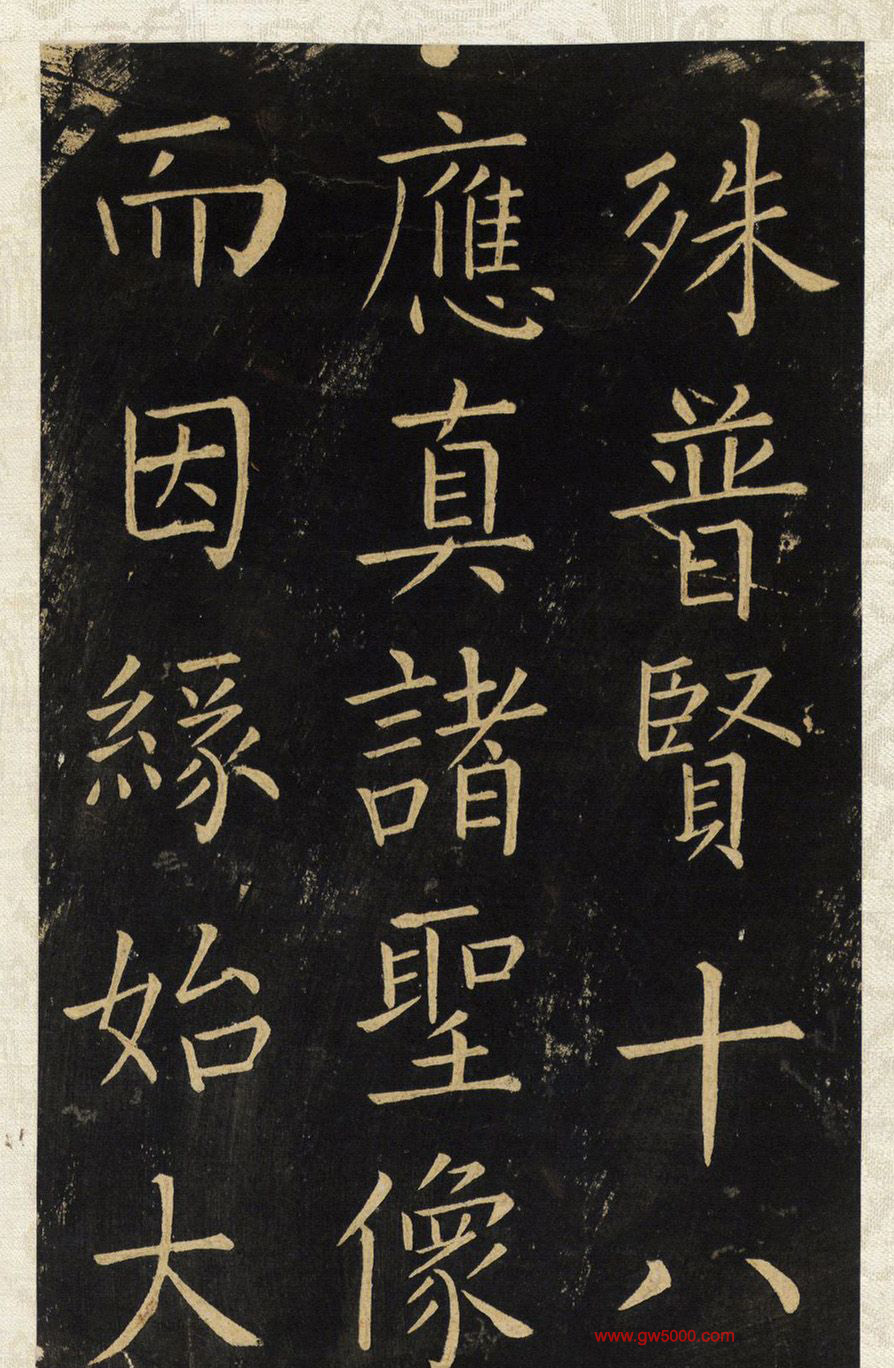 殊普賢十八
應真諸聖像
而因緣始大
www.gw5000.com